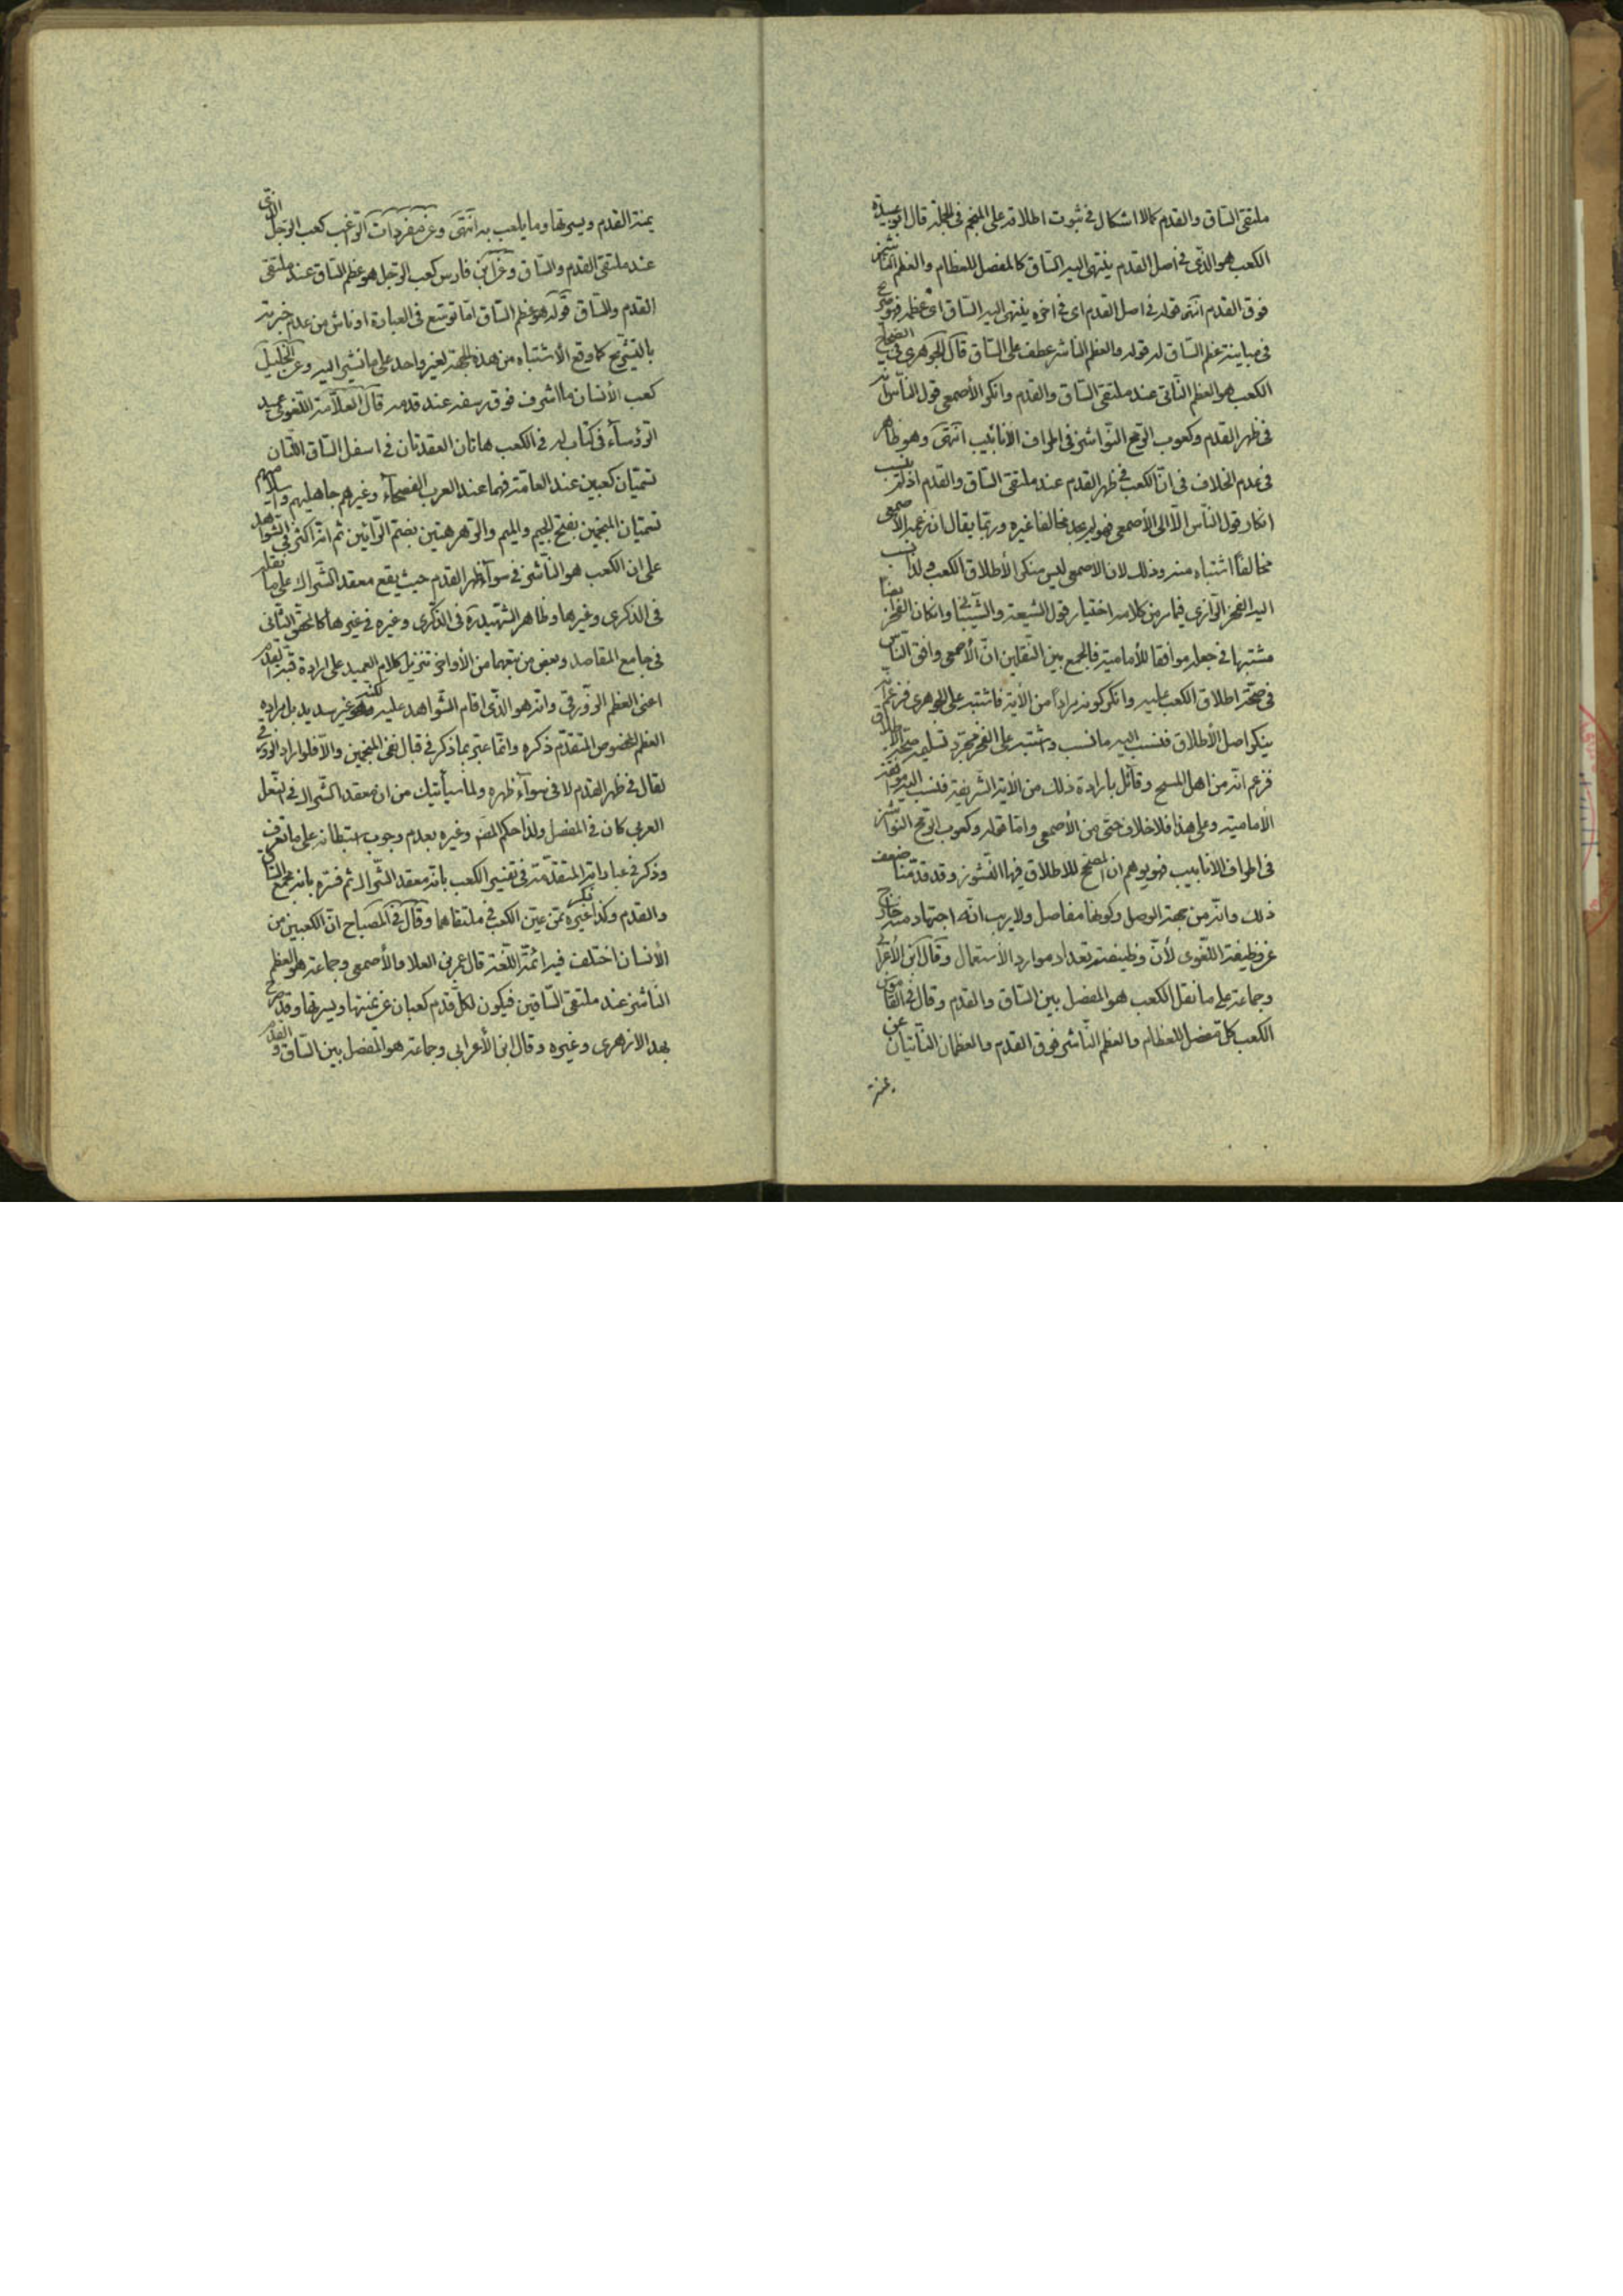 ملتقى السّاق والقدم كما لا اشكال فى ثبوت اطلاقه على المنجم فى الجملة قال ابو عبيدة
الكعب هو الذى فى اصل القدم ينتهى اليه السّاق كالمفصل للعظام والعظم الناشز
فوق القدم انتهى قوله فى اصل القدم اى فى اخره ينتهى اليه السّاق اى عظمه فهو صريح
فى مباينة عظم السّاق له قوله والعظم الناشز عطف على السّاق قال الجوهرى فى الصحاح
الكعب هو العظم النّاتى عند ملتقى السّاق والقدم وانكر الأصمعى قول النّاس انه
فى ظهر القدم وكعوب الرّمح النّواشز فى اطراف الأنابيب انتهى وهو ظاهر
فى عدم الخلاف فى انّ الكعب فى ظهر القدم عند ملتقى السّاق والقدم اذ لم ينسب
انكار قول النّاس الّا الى الأصمعى فهو لم يجد مخالفا غيره وربّما يقال ان زعمه الأصمعى
مخالفًا اشتباه منه وذلك لان الأصمعى ليس منكر الأطلاق الكعب ولذا نسب
اليه الفخر الرّازى فيما مرّ من كلامه اختيار قول الشيعة والشّيبانى وان كان الفخر ايضا
مشتبها فى جعله موافقا للأمامية فالجمع بين النّقلين انّ الأصمعى وافق النّاس
فى صحّة اطلاق الكعب عليه وانكر كونه مراداً من الأية فاشتبه على الجوهرى فزعم انه
ينكر اصل الأطلاق فنسب اليه ما نسب واشتبه على الفخر مجرّد تسليمه صحّة الاطلاق
فزعم انّه من اهل المسح وقائل بارادة ذلك من الأية الشّريفة فنسب اليه موافقة
الأمامية وعلى هذا فلا خلاف حتّى من الأصمعى وامّا قوله وكعوب الرّمح النّواشز
فى اطراف الانابيب فهو يوهم ان المصحّح للاطلاق فيها النّشوز وقد قدّمنا ضعف
ذلك وانّه من جهة الوصل وكونها مفاصل ولا ريب انّه اجتهاد منه خارج
عن وظيفة اللّغوى لأنّ وظيفته تعداد موارد الأستعمال وقال ابن الأعرابى
وجماعة على ما نقل الكعب هو المفصل بين السّاق والقدم وقال فى القاموس
الكعب كل مفصل للعظام والعظم النّاشز فوق القدم والعظمان النّاتيان عن
يمنة
يمنة القدم ويسرتها وما يلعب به انتهى وعن مفردات الرّاغب كعب الرّجل الذى
عند ملتقى القدم والسّاق وعن ابن فارس كعب الرّجل هو عظم السّاق عند ملتقى
القدم والسّاق قوله هو عظم السّاق امّا توسّع فى العبارة او ناش من عدم خبرته
بالتّشريح كما وقع الأشتباه من هذه الجهة لغير واحد على ما نشير اليه وعن الخليل
كعب الأنسان ما اشرف فوق رسغه عند قدمه قال العلّامة اللّغوى عميد
الرّؤساء فى كتاب له فى الكعب هاتان العقدتان فى اسفل السّاق اللّتان
تسمّيان كعبين عند العامّة فهما عند العرب الفصحاء وغيرهم جاهليهم واسلاميهم
تسمّيان المنجمين بفتح الجيم والميم والرّهرهتين بضم الرّائين ثم انّه اكثر فى الشّواهد
على ان الكعب هو النّاشز فى سواء ظهر القدم حيث يقع معقد الشّراك على ما نقله
فى الذكرى وغيرها وظاهر الشّهيد ره فى الذّكرى وغيره فى غيرها كالمحقّق الثّانى
فى جامع المقاصد وبعض من تبعهما من الأواخر تنزيل كلام العميد على ارادة قبّة القدم
اعنى العظم الزّورقى وانّه هو الذّى اقام الشّواهد عليه لكنّه غير سديد بل مراده
العظم المخصوص المتقدّم ذكره وانّما عبّر بما ذكر فى قبال نفى المنجمين والّا فلو اراد الزورقى
لقال فى ظهر القدم لا فى سواء ظهره ولما سيأتيك من ان معقد الشّراك فى النّعل
العربى كان فى المفصل ولذا حكم المص وغيره بعدم وجوب استبطانه على ما تعرف
وذكر فى عباداته المتقدّمة فى تفسير الكعب بانّه معقد الشّراك ثم فسّره بانه مجمع السّاق
والقدم وكذا غيره ممّن عيّن الكعب فى ملتقاهما وقال فى المصباح انّ الكعبين من
الأنسان اختلف فيه ائمّة اللّغة قال عمرو بن العلا والأصمعى وجماعة هو العظم
النّاشز عند ملتقى السّاقين فيكون لكلّ قدم كعبان عن يمنيتها ويسرتها وقد صرّح
بهذا الازهرى وغيره وقال ابن الأعرابى وجماعة هو المفصل بين السّاق والقدم